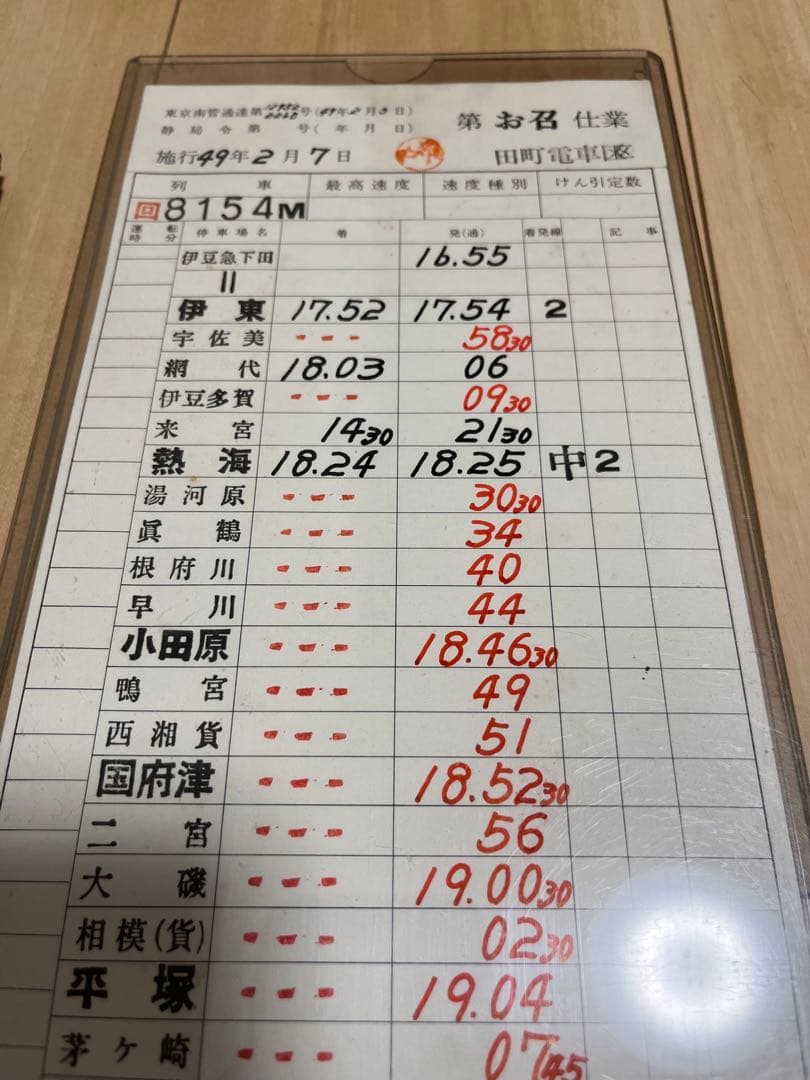 東京南管通達第 号(49年2月5日)
静局令第 号( 年 月 日)
第 お召 仕業
施行49年2月7日
田町電車区
列車 最高速度 速度種別 けん引定数
回8154M
運転時分 停車場名 着 発(通) 着発線 記事
伊豆急下田 16.55
〃
伊東 17.52 17.54 2
宇佐美 --- 58 30
網代 18.03 06
伊豆多賀 --- 09 30
来宮 14 30 21 30
熱海 18.24 18.25 中2
湯河原 --- 30 30
眞鶴 --- 34
根府川 --- 40
早川 --- 44
小田原 --- 18.46 30
鴨宮 --- 49
西湘貨 --- 51
国府津 --- 18.52 30
二宮 --- 56
大磯 --- 19.00 30
相模(貨) --- 02 30
平塚 --- 19.04
茅ヶ崎 --- 07 45